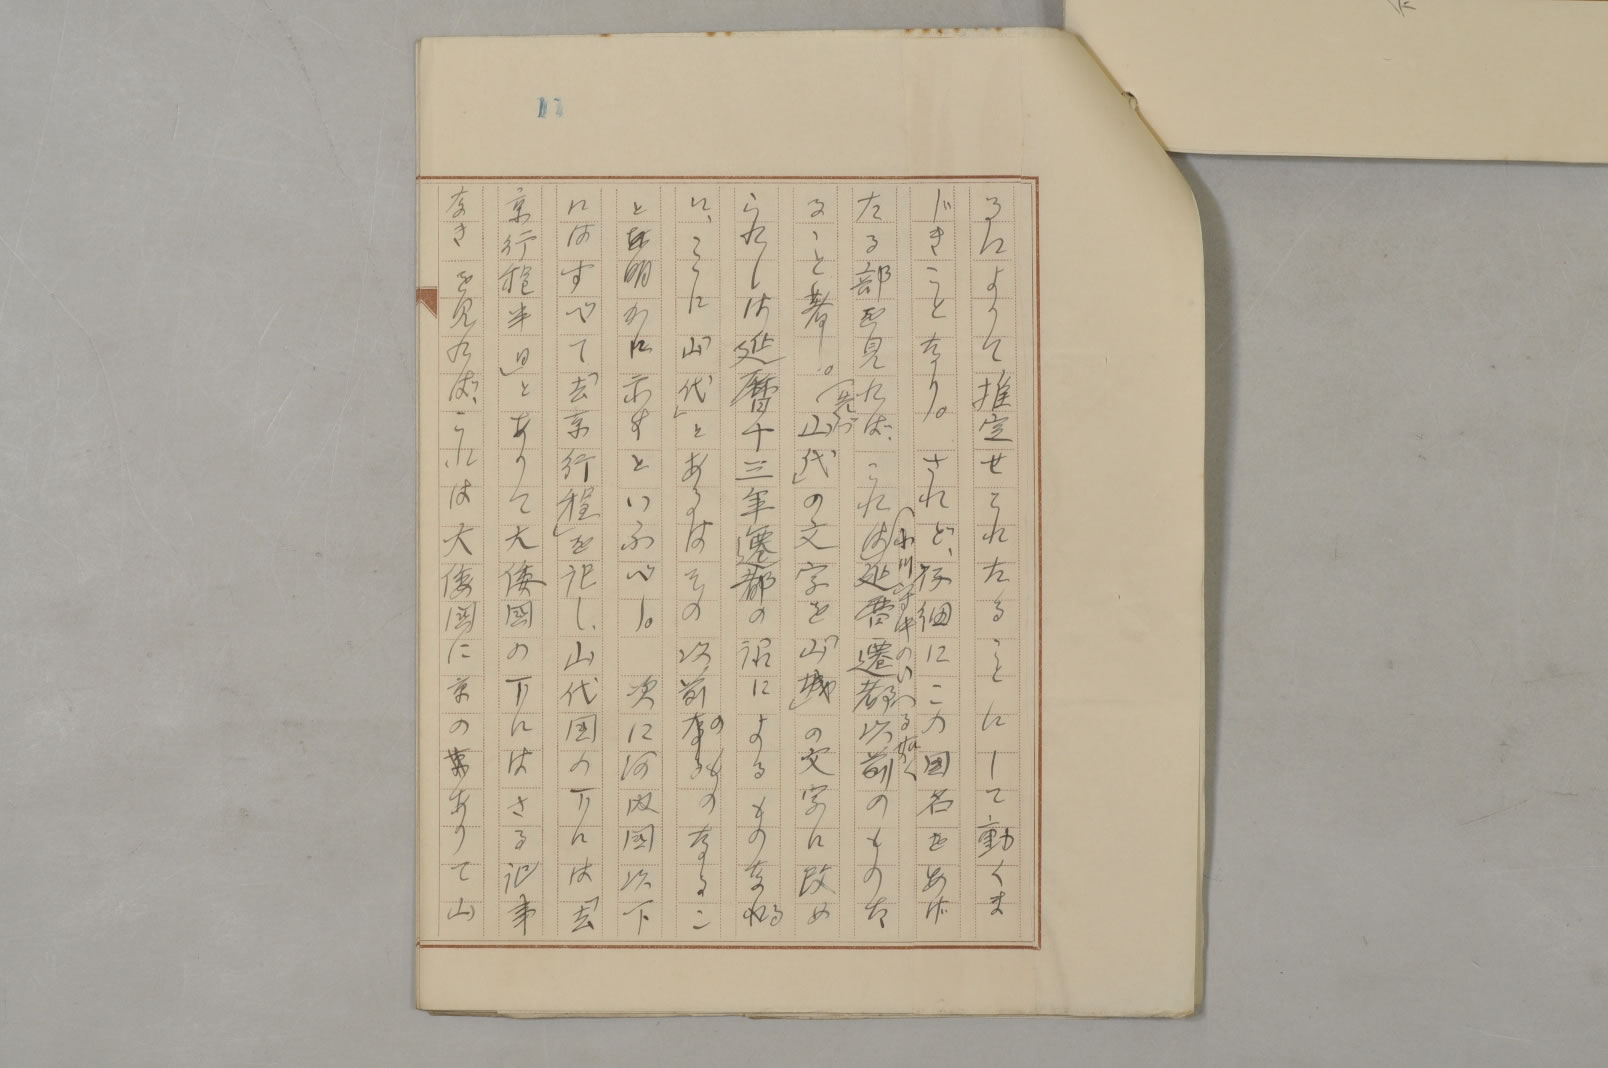 るによりて推定せられたることにして動くま
じきことなり。されど、仔細にこの国名をあげ
たる部を見れば、これは延暦遷都以前のものた
ること著し。「山代」の文字を「山城」の文字に改め
られしは延暦十三年遷都の詔によるものなる
に、ここに「山代」とあるはその以前のものなるこ
とを明かに示すといふべし。次に河内国以下
にはすべて「去京行程」を記し、山代国の下には「去
京行程半日」とありて大倭国の下にはさる記事
なきを見れば、これは大倭国に京のありて山